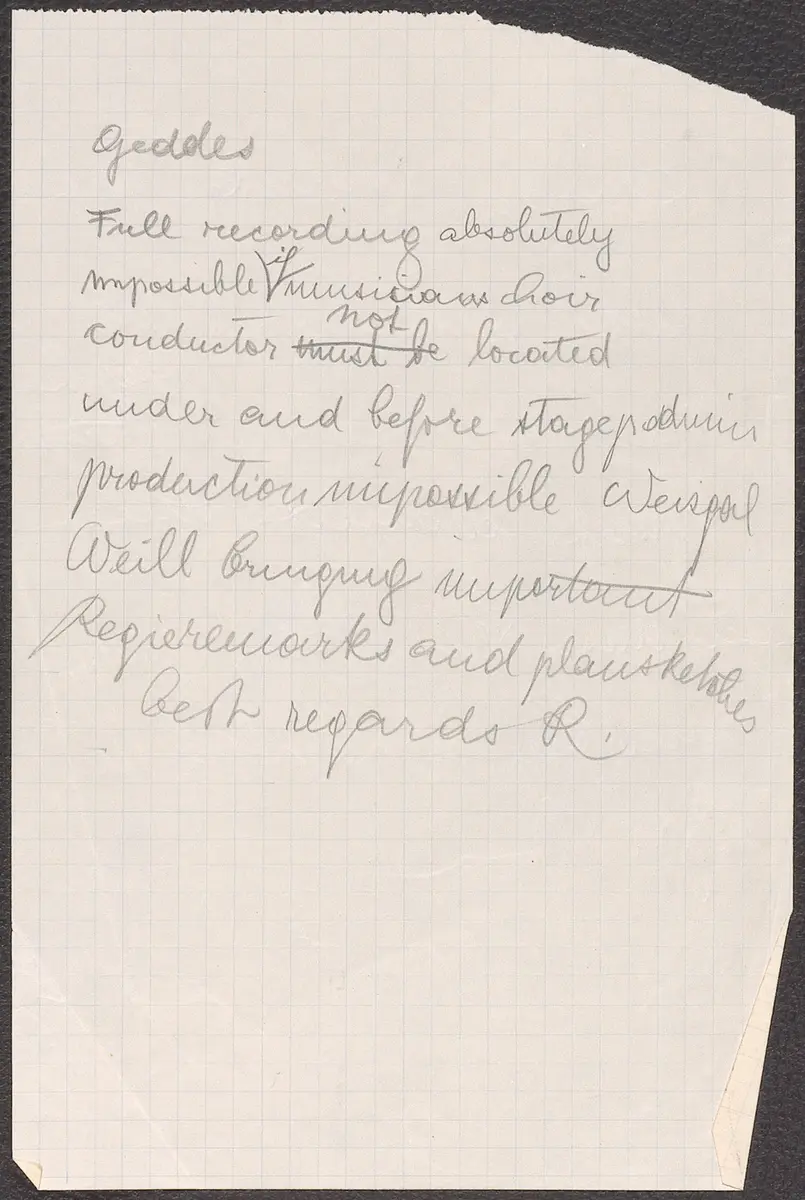 Geddes
Full recording absolutely
impossible if musicians choir
conductor must be not located
under and before stagepodium
production impossible Weisgal
Weill bringing important
Regieremarks and plansketches
best regards R.